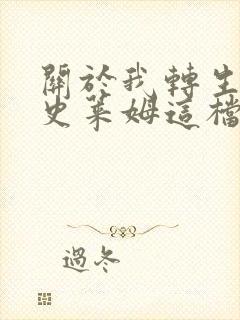 關於我轉生
史萊姆這檔
過冬